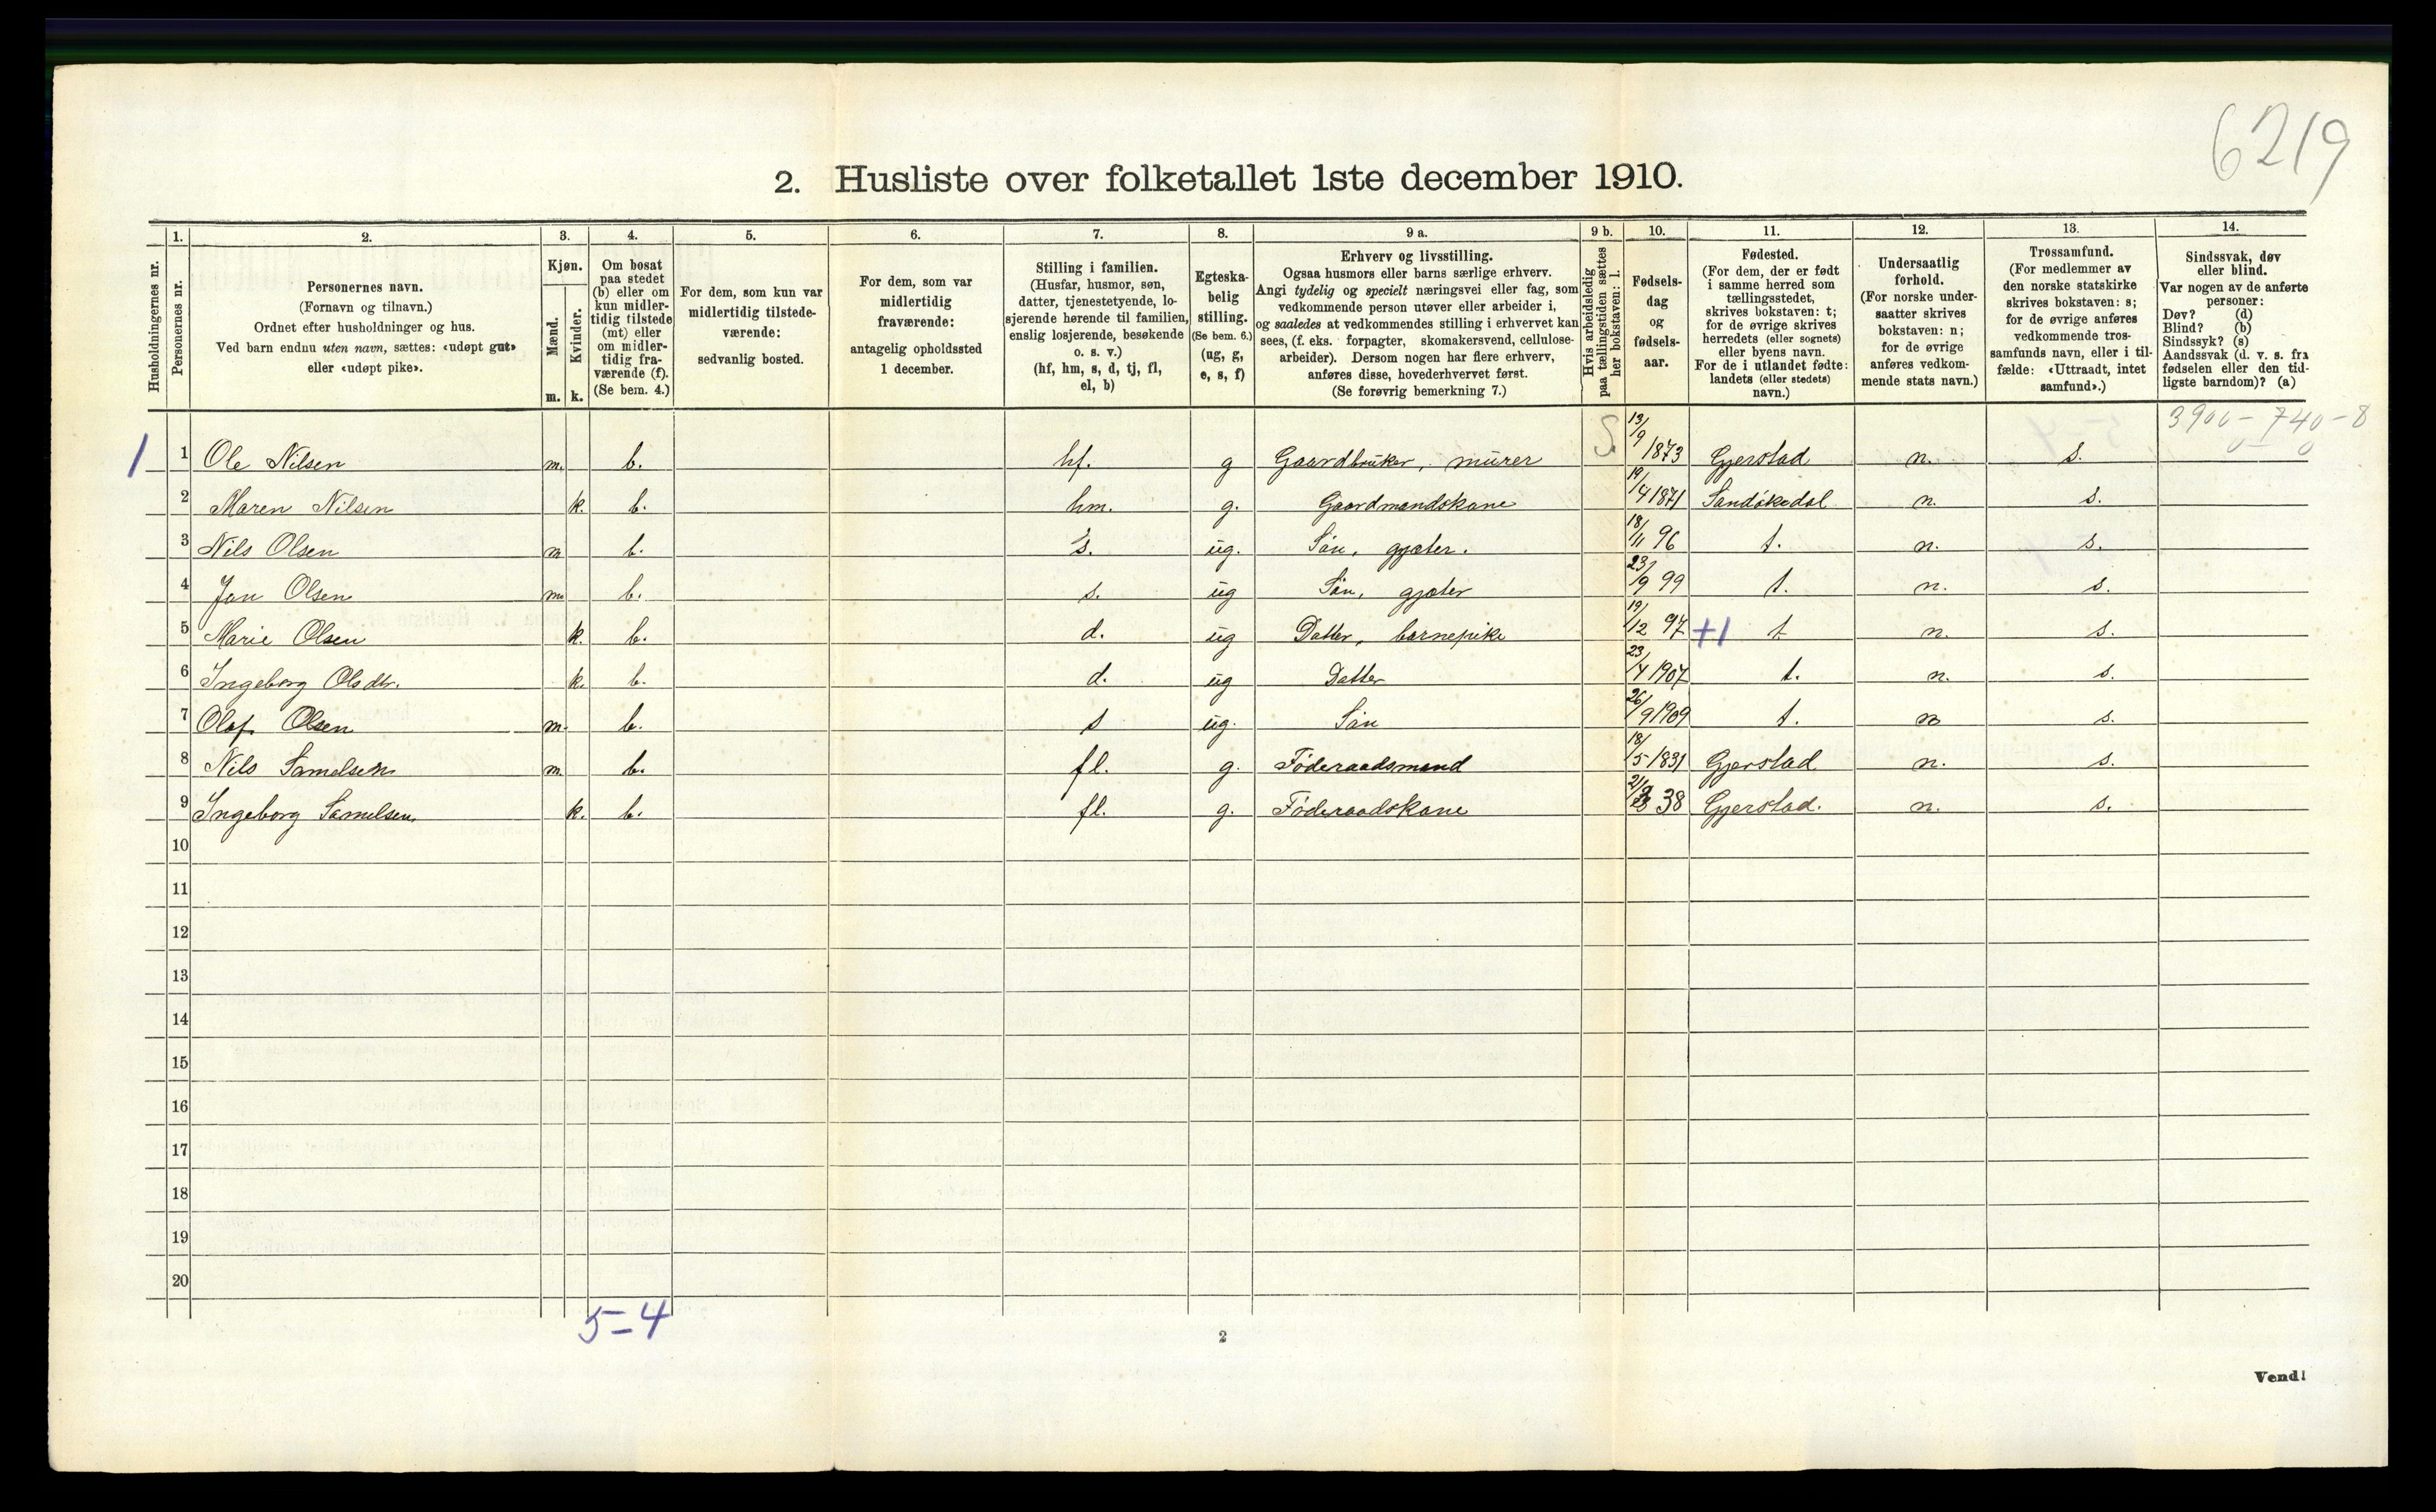 6219
2. Husliste over folketallet 1ste december 1910.
Husholdningernes nr.
1. Personernes nr.
2. Personernes navn. (Fornavn og tilnavn.) Ordnet efter husholdninger og hus. Ved barn endnu uten navn, sættes: «udøpt gut» eller «udøpt pike».
3. Kjøn. Mænd. m. Kvinder. k.
4. Om bosat paa stedet (b) eller om kun midler-tidig tilstede (mt) eller om midler-tidig fra-værende (f). (Se bem. 4.)
5. For dem, som kun var midlertidig tilstede-værende: sedvanlig bosted.
6. For dem, som var midlertidig fraværende: antagelig opholdssted 1 december.
7. Stilling i familien. (Husfar, husmor, søn, datter, tjenestetyende, lo-sjerende hørende til familien, enslig losjerende, besøkende o. s. v.) (hf, hm, s, d, tj, fl, el, b)
8. Egteska-belig stilling. (Se bem. 6.) (ug, g, e, s, f)
9 a. Erhverv og livsstilling. Ogsaa husmors eller barns særlige erhverv. Angi tydelig og specielt næringsvei eller fag, som vedkommende person utøver eller arbeider i, og saaledes at vedkommendes stilling i erhvervet kan sees, (f. eks. forpagter, skomakersvend, cellulose-arbeider). Dersom nogen har flere erhverv, anføres disse, hovederhvervet først. (Se forøvrig bemerkning 7.)
9 b. Hvis arbeidsledig paa tællingstiden sættes her bokstaven: l.
10. Fødsels-dag og fødsels-aar.
11. Fødested. (For dem, der er født i samme herred som tællingsstedet, skrives bokstaven: t; for de øvrige skrives herredets (eller sognets) eller byens navn. For de i utlandet fødte: landets (eller stedets) navn.)
12. Undersaatlig forhold. (For norske under-saatter skrives bokstaven: n; for de øvrige anføres vedkom-mende stats navn.)
13. Trossamfund. (For medlemmer av den norske statskirke skrives bokstaven: s; for de øvrige anføres vedkommende tros-samfunds navn, eller i til-fælde: «Uttraadt, intet samfund».)
14. Sindssvak, døv eller blind. Var nogen av de anførte personer: Døv? (d) Blind? (b) Sindssyk? (s) Aandssvak (d. v. s. fra fødselen eller den tid-ligste barndom)? (a)
3900 - 740 - 8
0 - 0
1 1 Ole Nilsen m. b. hf. g Gaardbruker, murer S. 13/9 1873 Gjerstad n. s.
2 Maren Nilsen k. b. hm. g. Gaardmandskone 19/4 1871 Sandökedal n. s.
3 Nils Olsen m b. s. ug. Sön, gjæter. 18/11 96 t. n. s.
4 Jan Olsen m. b. s. ug Sön, gjæter 23/9 99 t. n. s.
5 Marie Olsen k. b. d. ug Datter, barnepike 19/12 97 +1 t n. s.
6 Ingeborg Olsdtr. k. b. d. ug Datter 23/4 1907 t. n. s.
7 Olaf Olsen m. b. s ug. Sön 26/9 1909 t. n s.
8 Nils Samelsen m. b. fl. g. Föderaadsmand 18/5 1831 Gjerstad n. s.
9 Ingeborg Samelsen k. b. fl. g. Föderaadskone 38 Gjerstad. n. s.
10
11
12
13
14
15
16
17
18
19
20
5-4
2
Vend!